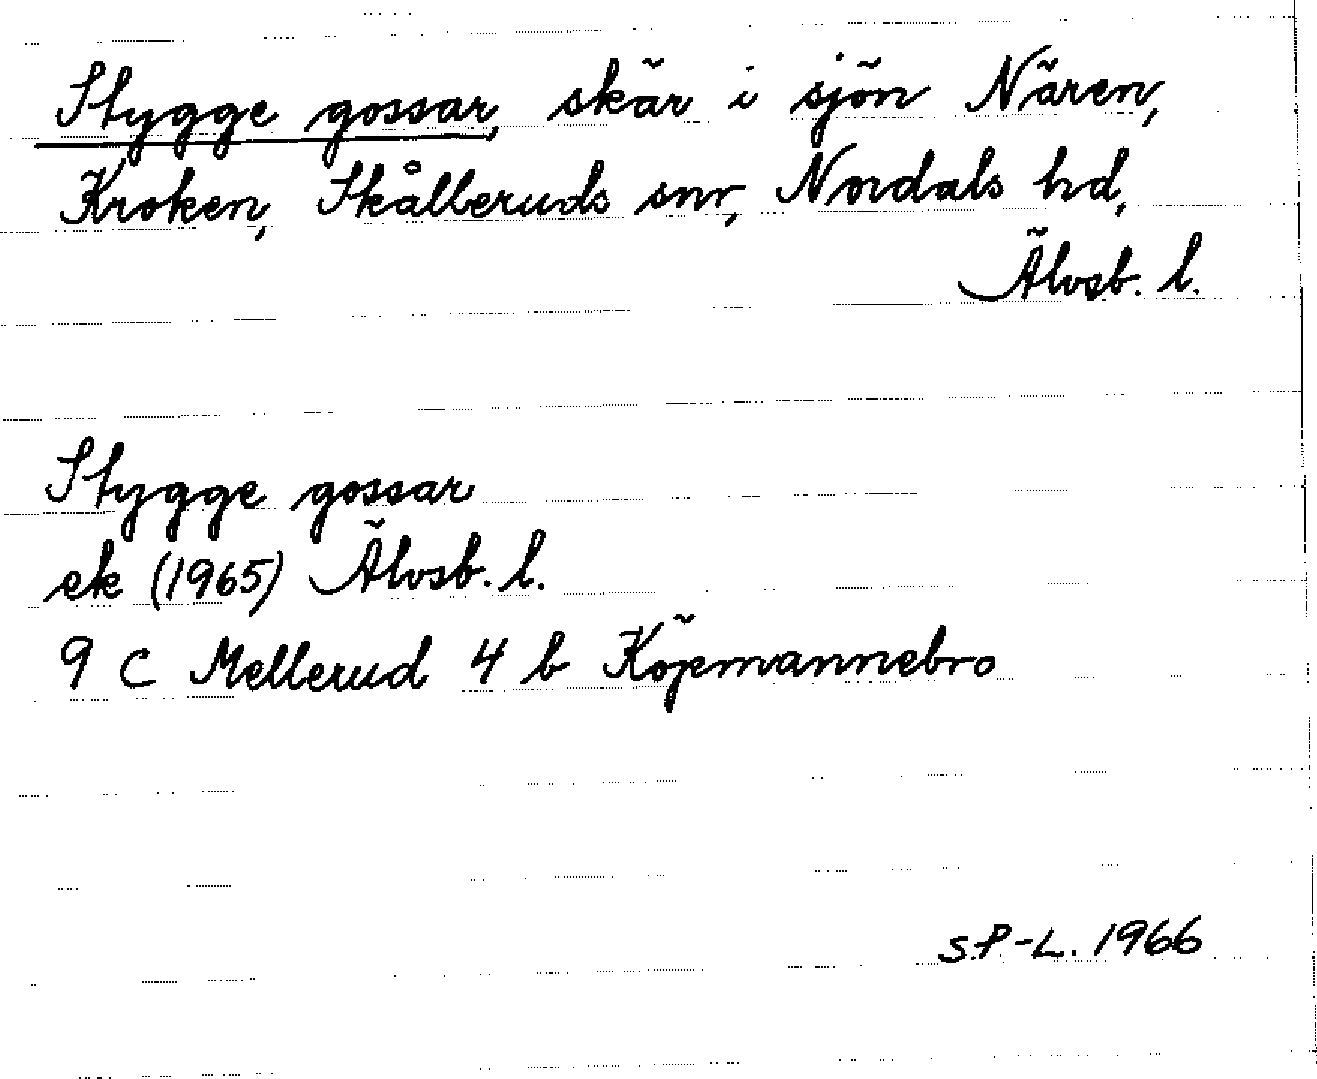 Stygge gossar, skär i sjön Nären,
Kroken, Skålleruds snr, Nordals hd,
Älvsb. l.
Stygge gossar
ek (1965) Älvsb. l.
9 C Mellerud 4 b Köpmannebro
S.P-L. 1966